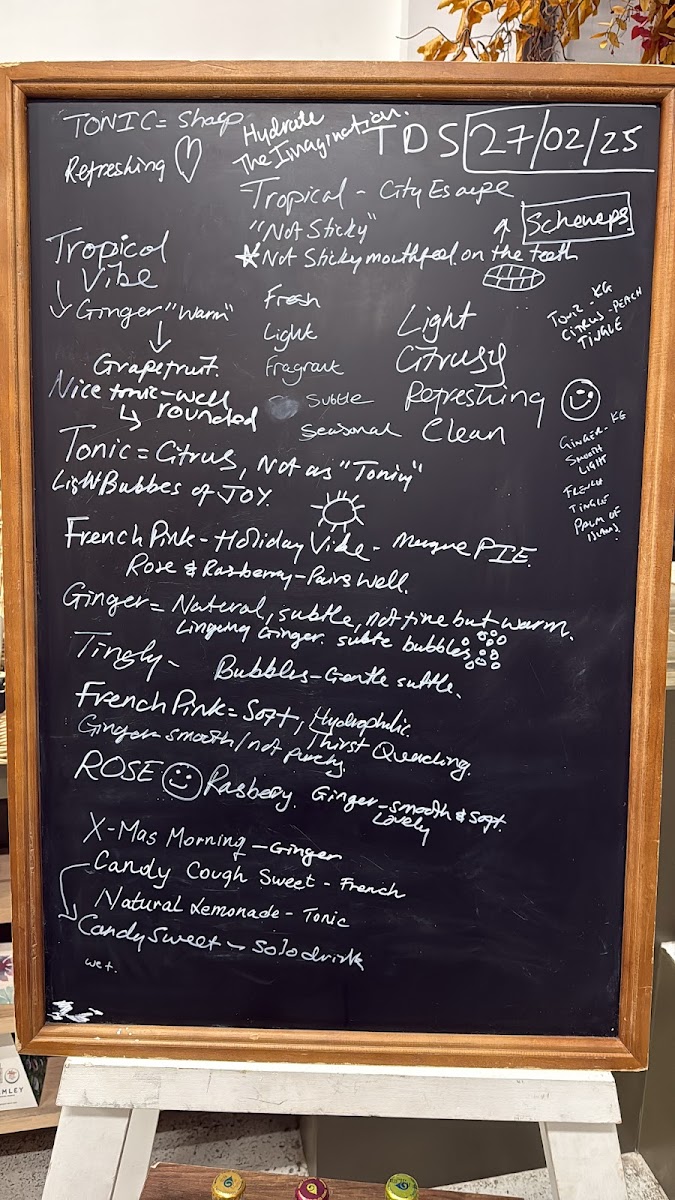 TONIC = Sharp
Refreshing
Hydrate
The Imagination.
TDS 27/02/25
Tropical - City Escape
"Not Sticky"
Not Sticky mouthfeel on the teeth
Schweps
Tropical
Vibe
Ginger "Warm"
Grapefruit.
Nice tonic - well
rounded
Fresh
Light
Fragrant
Subtle
Seasonal
Light
Citrusy
Refreshing
Clean
TONIC - KG
CITRUS - PEACH
TINGLE
GINGER - KG
SMOOTH
LIGHT
FRENCH
TINGLE
PALM OF
Tonic = Citrus, Not as "Toniy"
Light Bubbes of JOY.
French Pink - Holiday Vibe - Merque PIE.
Rose & Rasberry - Pairs well.
Ginger = Natural, subtle, not fire but warm.
Linging Ginger. subte bubbles
Tingly - Bubbles - Gentle suttle.
French Pink = Soft, Hydrophilic.
Thirst Quenching.
Ginger - smooth / not
ROSE Rasbery. Ginger - smooth & soft.
Lovely
X-Mas Morning - Ginger
Candy Cough Sweet - French
Natural Lemonade - Tonic
Candy Sweet - Solo drink
wet.
MLEY